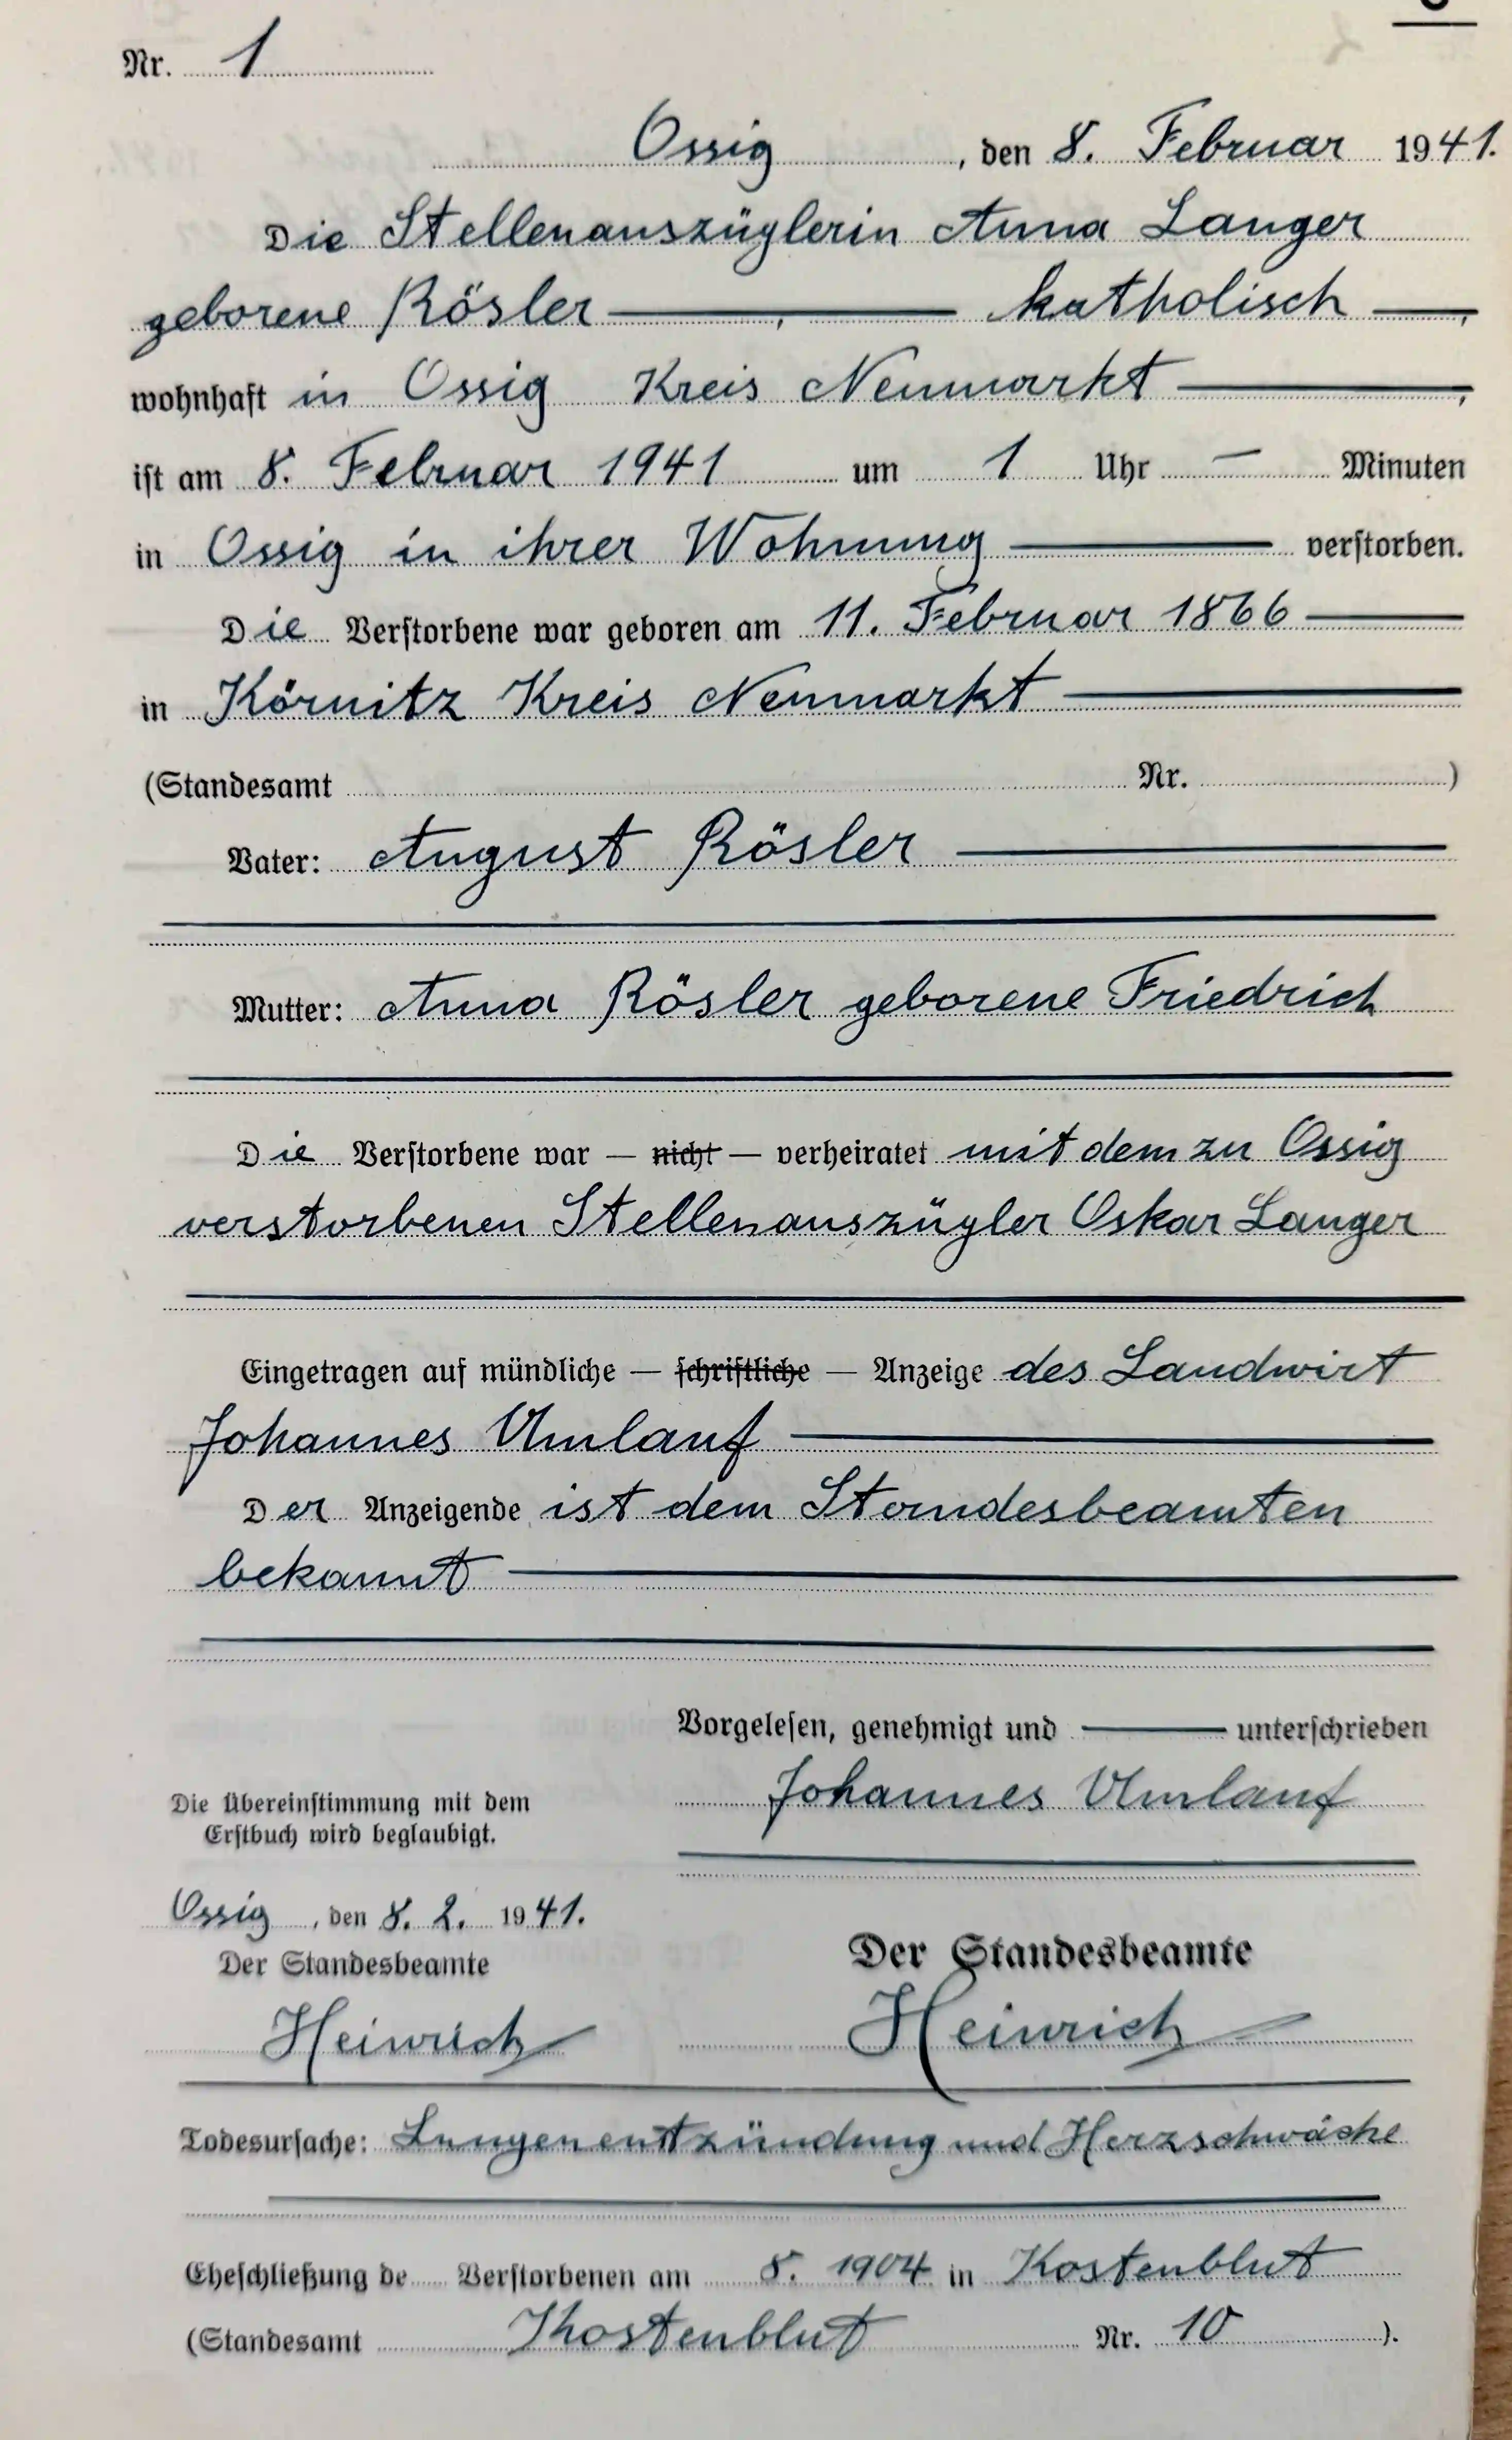 Nr. 1
Ossig, den 8. Februar 1941.
Die Stellenauszüglerin Anna Langer
geborene Rösler —, — katholisch —,
wohnhaft in Ossig Kreis Neumarkt —,
ist am 8. Februar 1941 um 1 Uhr — Minuten
in Ossig in ihrer Wohnung — verstorben.
Die Verstorbene war geboren am 11. Februar 1866 —
in Körnitz Kreis Neumarkt —
(Standesamt Nr. )
Vater: August Rösler —
Mutter: Anna Rösler geborene Friedrich
Die Verstorbene war — nicht — verheiratet mit dem zu Ossig
verstorbenen Stellenauszügler Oskar Langer
Eingetragen auf mündliche — schriftliche — Anzeige des Landwirt
Johannes Umlauf —
Der Anzeigende ist dem Standesbeamten
bekannt —
Vorgelesen, genehmigt und — unterschrieben
Johannes Umlauf
Die Übereinstimmung mit dem
Erstbuch wird beglaubigt.
Ossig, den 8. 2. 1941.
Der Standesbeamte
Heinrich
Der Standesbeamte
Heinrich
Todesursache: Lungenentzündung und Herzschwäche
Eheschließung de Verstorbenen am 8. 1904 in Kostenblut
(Standesamt Kostenblut Nr. 10 ).